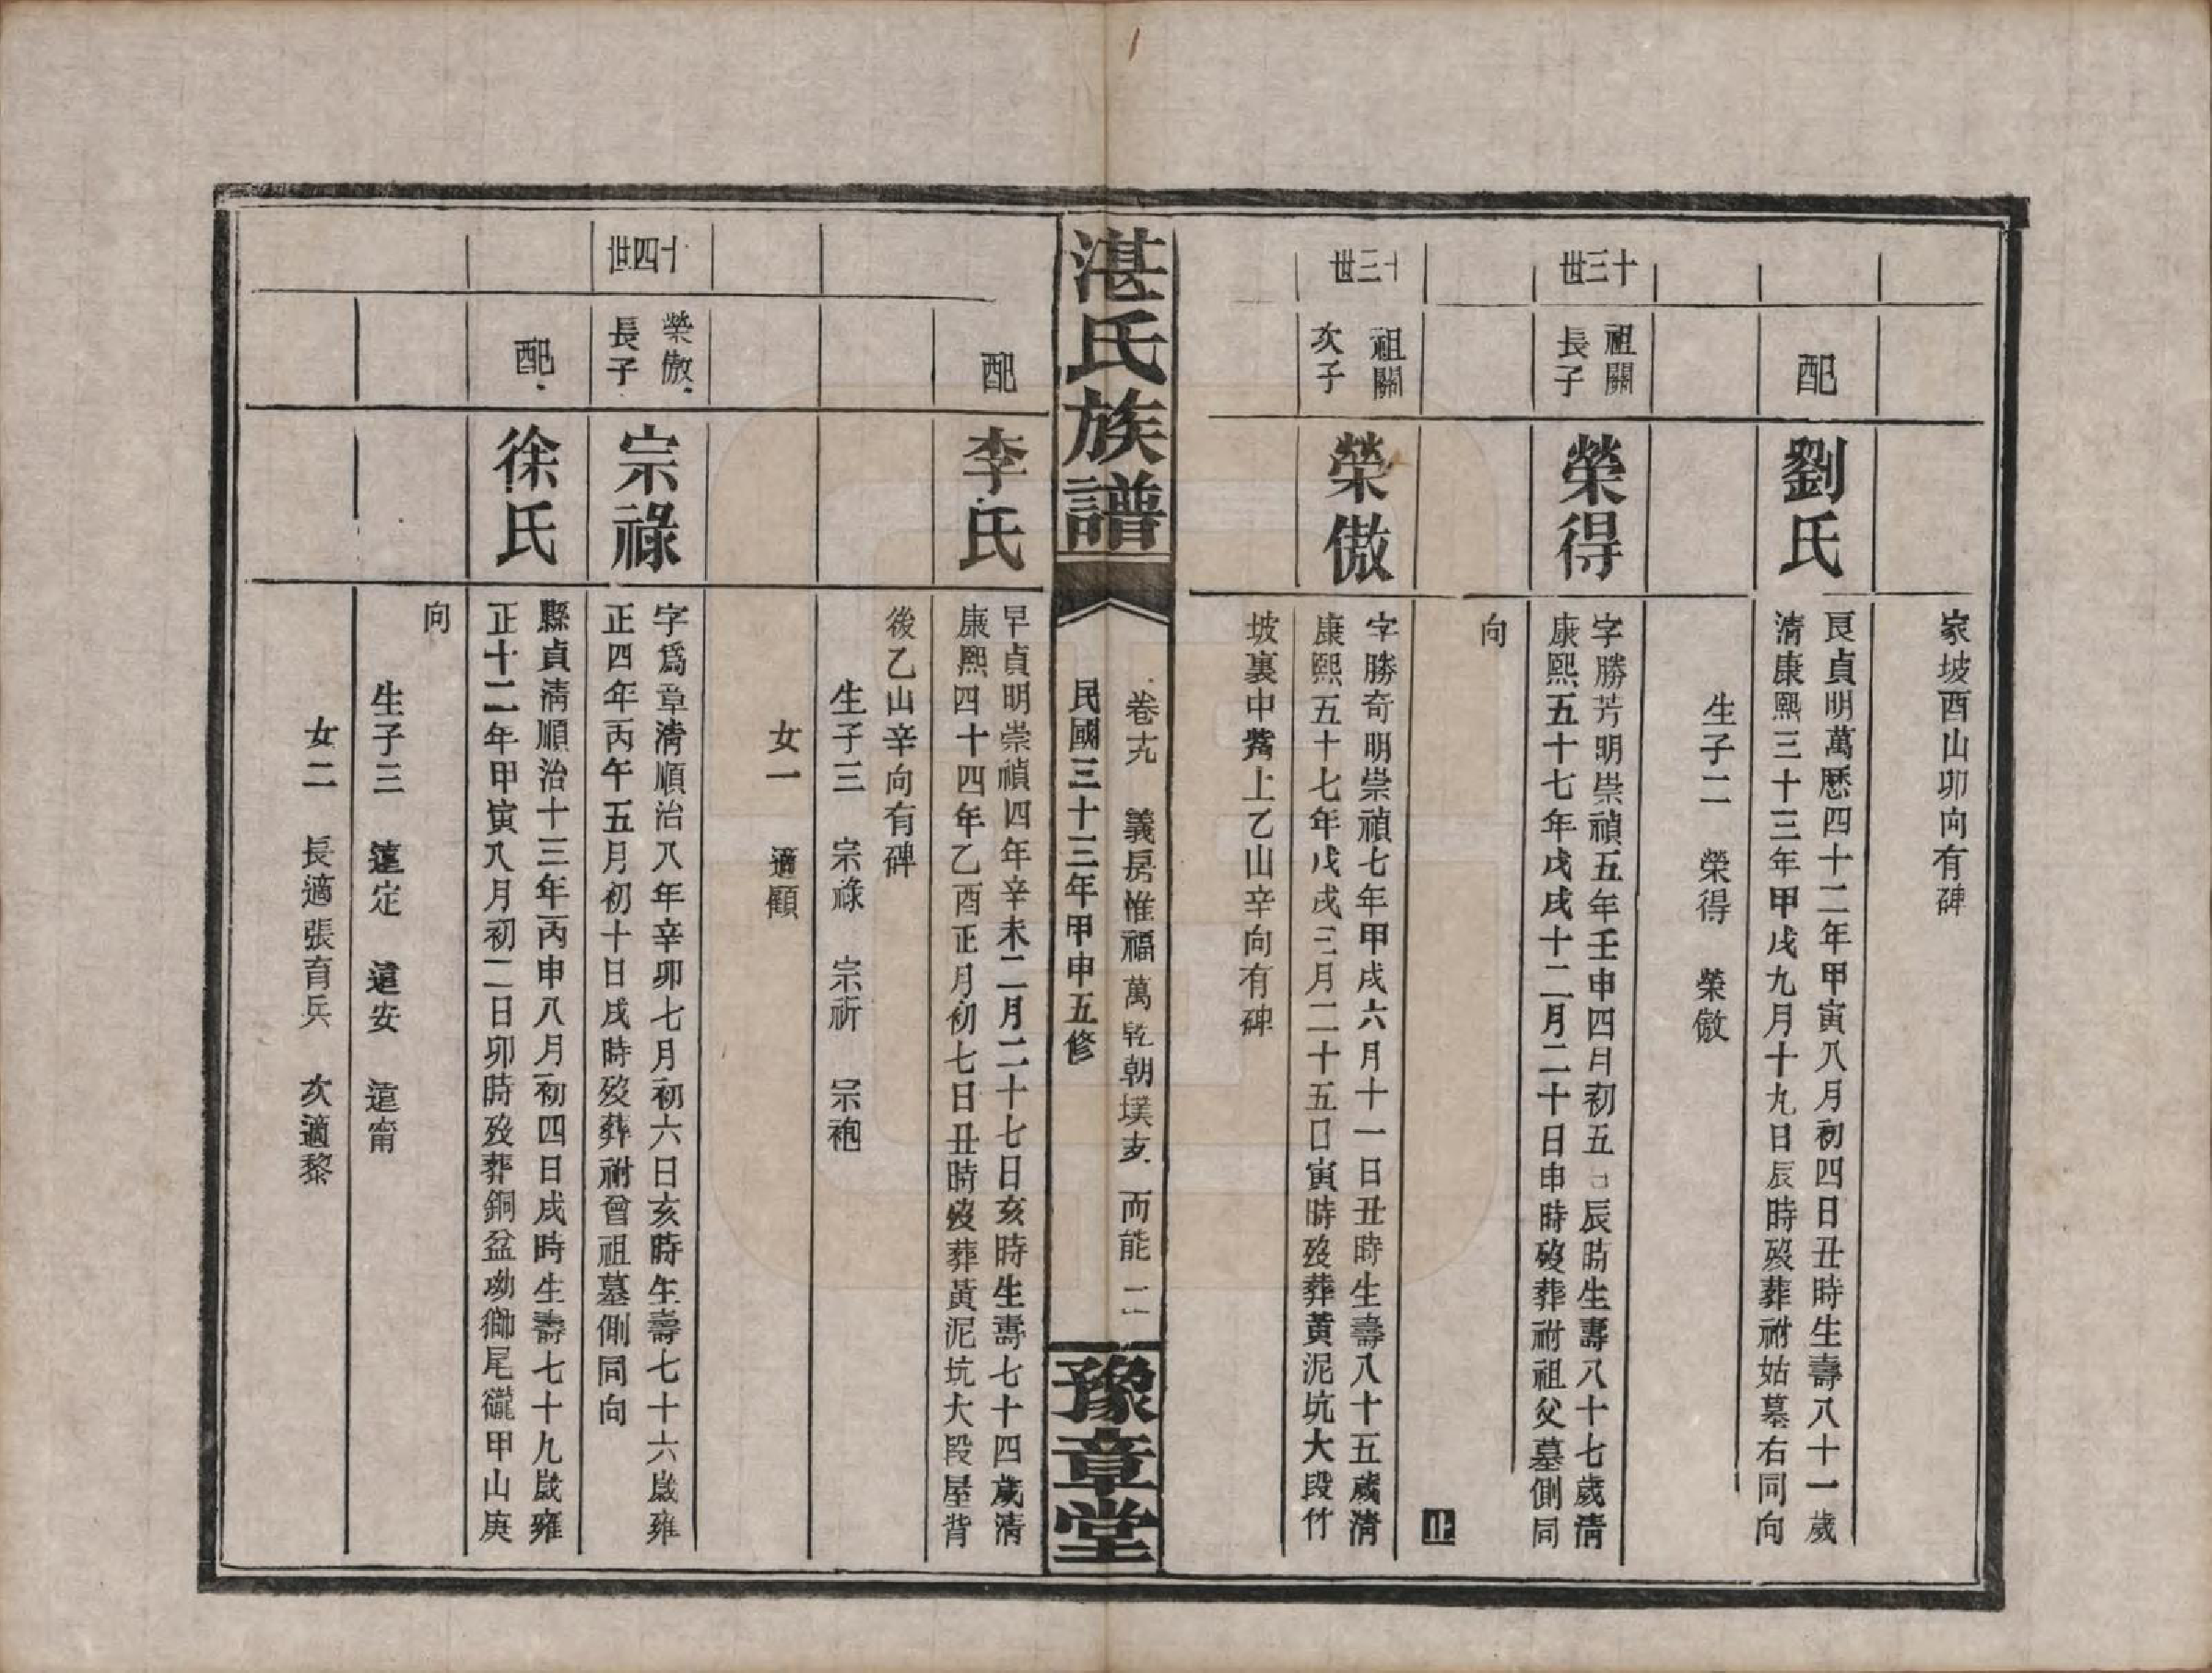 家坡酉山卯向有碑
配
劉氏
良貞明萬歷四十二年甲寅八月初四日丑時生壽八十一歲
清康熙三十三年甲戌九月十九日辰時歿葬祔姑墓右同向
生子二 榮得 榮傲
十三世
祖關
長子
榮得
字勝芳明崇禎五年壬申四月初五日辰時生壽八十七歲清
康熙五十七年戊戌十二月二十日申時歿葬祔祖父墓側同
向
止
十三世
祖關
次子
榮傲
字勝奇明崇禎七年甲戌六月十一日丑時生壽八十五歲清
康熙五十七年戊戌三月二十五日寅時歿葬黃泥坑大段竹
坡裏中嘴上乙山辛向有碑
湛氏族譜
卷十九 義房惟福萬乾朝墣支 而能 二
民國三十三年甲申五修
豫章堂
配
李氏
早貞明崇禎四年辛未二月二十七日亥時生壽七十四歲清
康熙四十四年乙酉正月初七日丑時歿葬黃泥坑大段屋背
後乙山辛向有碑
生子三 宗祿 宗祈 宗袍
女一 適顧
十四世
榮傲
長子
宗祿
字爲章清順治八年辛卯七月初六日亥時生壽七十六歲雍
正四年丙午五月初十日戌時歿葬祔曾祖墓側同向
配
徐氏
縣貞清順治十三年丙申八月初四日戌時生壽七十九歲雍
正十二年甲寅八月初二日卯時歿葬銅盆坳獅尾甲山庚
向
生子三 遠定 遠安 遠甯
女二 長適張育兵 次適黎